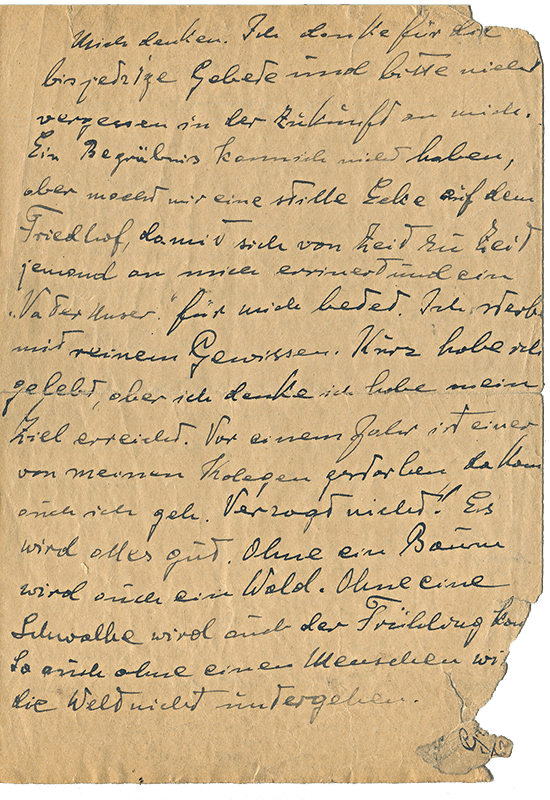 Mich denken. Ich danke für die
bisjedzige Gebete und bitte nicht
vergessen in der Zukunft an mich.
Ein Begräbnis kannich nicht haben,
aber macht mir eine stille Ecke auf dem
Friedhof, damit sich von Zeid zu Zeid
jemand an mich errinert und ein
"Vader unser" für mich beded. Ich sterbe
mit reinem Gewissen. Kurz habe ich
gelebt, aber ich denke ich habe mein
Ziel erreicht. Vor einem Jahr ist einer
von meinen Kolegen gestorben da kann
auch ich geh. Verzagt nicht! Es
wird alles gut. Ohne ein Baum
wird auch ein Wald. Ohne eine
Schwalbe wird auch der Frühling kom
So auch ohne einen Menschen wi
die Welt nicht undergehen.